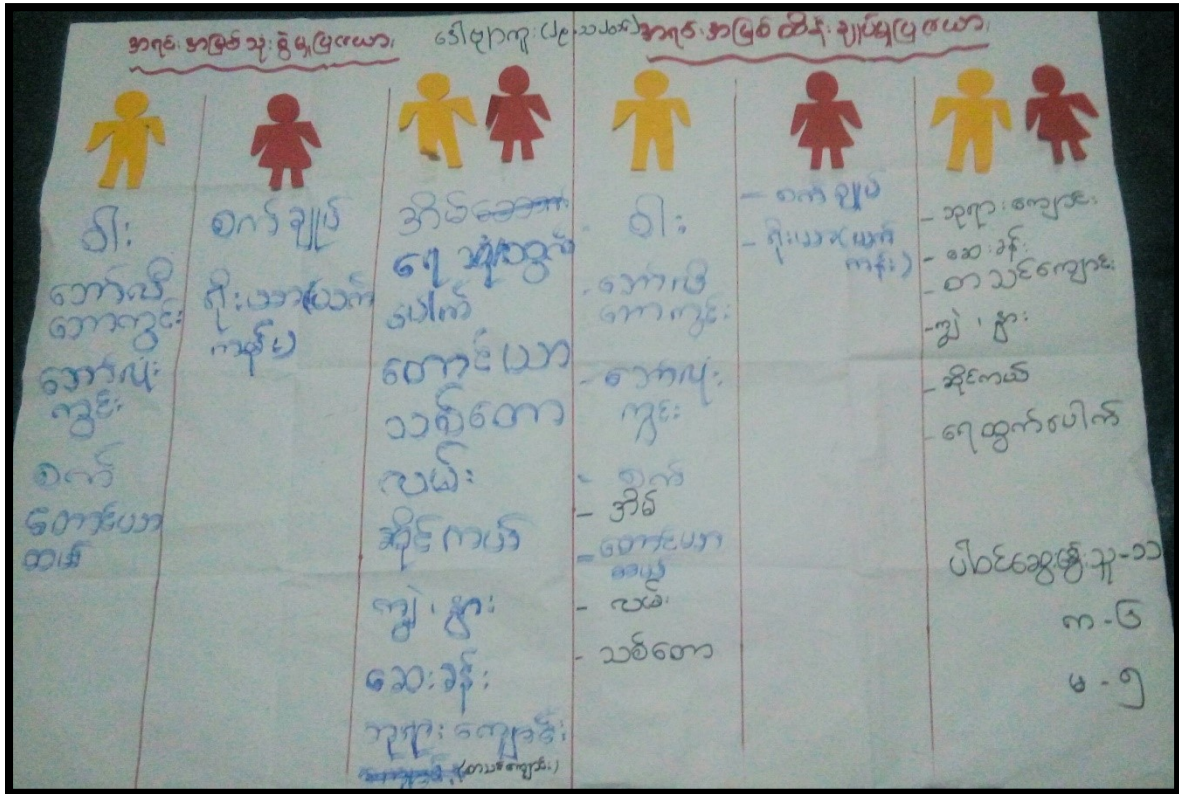 အရင်းအမြစ်သုံးစွဲမှုပြဇယား
အရင်းအမြစ်ထိန်းချုပ်မှုပြဇယား
ဝါး
ဘော်လီ
ဘောကွင်း
ဘော်လုံး
ကွင်း
စက်
တောင်ယာ
စက်ချုပ်
ရိုးယာ(ယက်
ကန်း)
အိမ်
ရေ
ပေါက်
တောင်ယာ
သစ်တော
လမ်း
ဆိုင်ကယ်
ကျွဲ၊ နွား
ဆေးခန်း
ဘုရားကျောင်း
(စာသင်ကျောင်း)
- ဝါး
- ဘော်လီ
ဘောကွင်း
- ဘော်လုံး
ကွင်း
- စက်
- အိမ်
- တောင်ယာ
- လမ်း
- သစ်တော
- စက်ချုပ်
- ရိုးယာ(ယက်
ကန်း)
- ဘုရားကျောင်း
- ဆေးခန်း
- စာသင်ကျောင်း
- ကျွဲ၊ နွား
- ဆိုင်ကယ်
- ရေထွက်ပေါက်
ပါဝင်ဆွေးနွေးသူ - ၁၁
က - ၆
မ - ၅